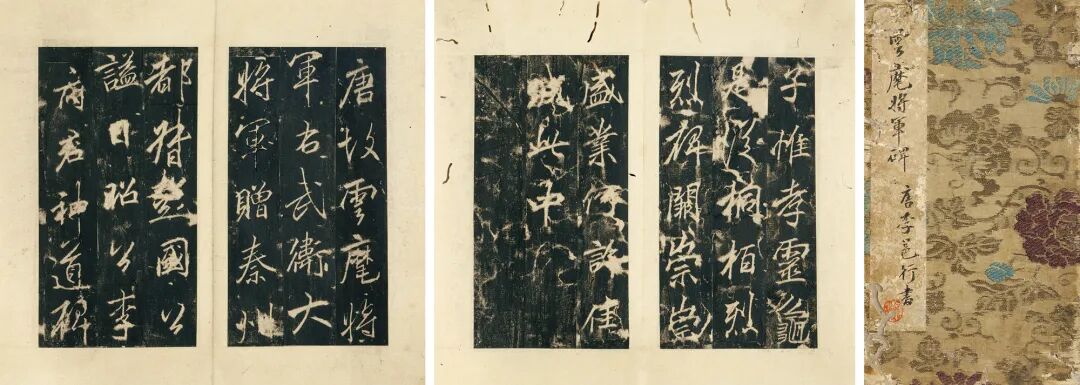 唐故雲麾將
軍右武衛大
將軍贈秦州
都督彭國公
謚曰昭公李
府君神道碑
子惟孝靈龜
是從桐栢烈
烈碑闕崇崇
盛業何許佳
城此中
雲麾將軍碑 唐李邕行書